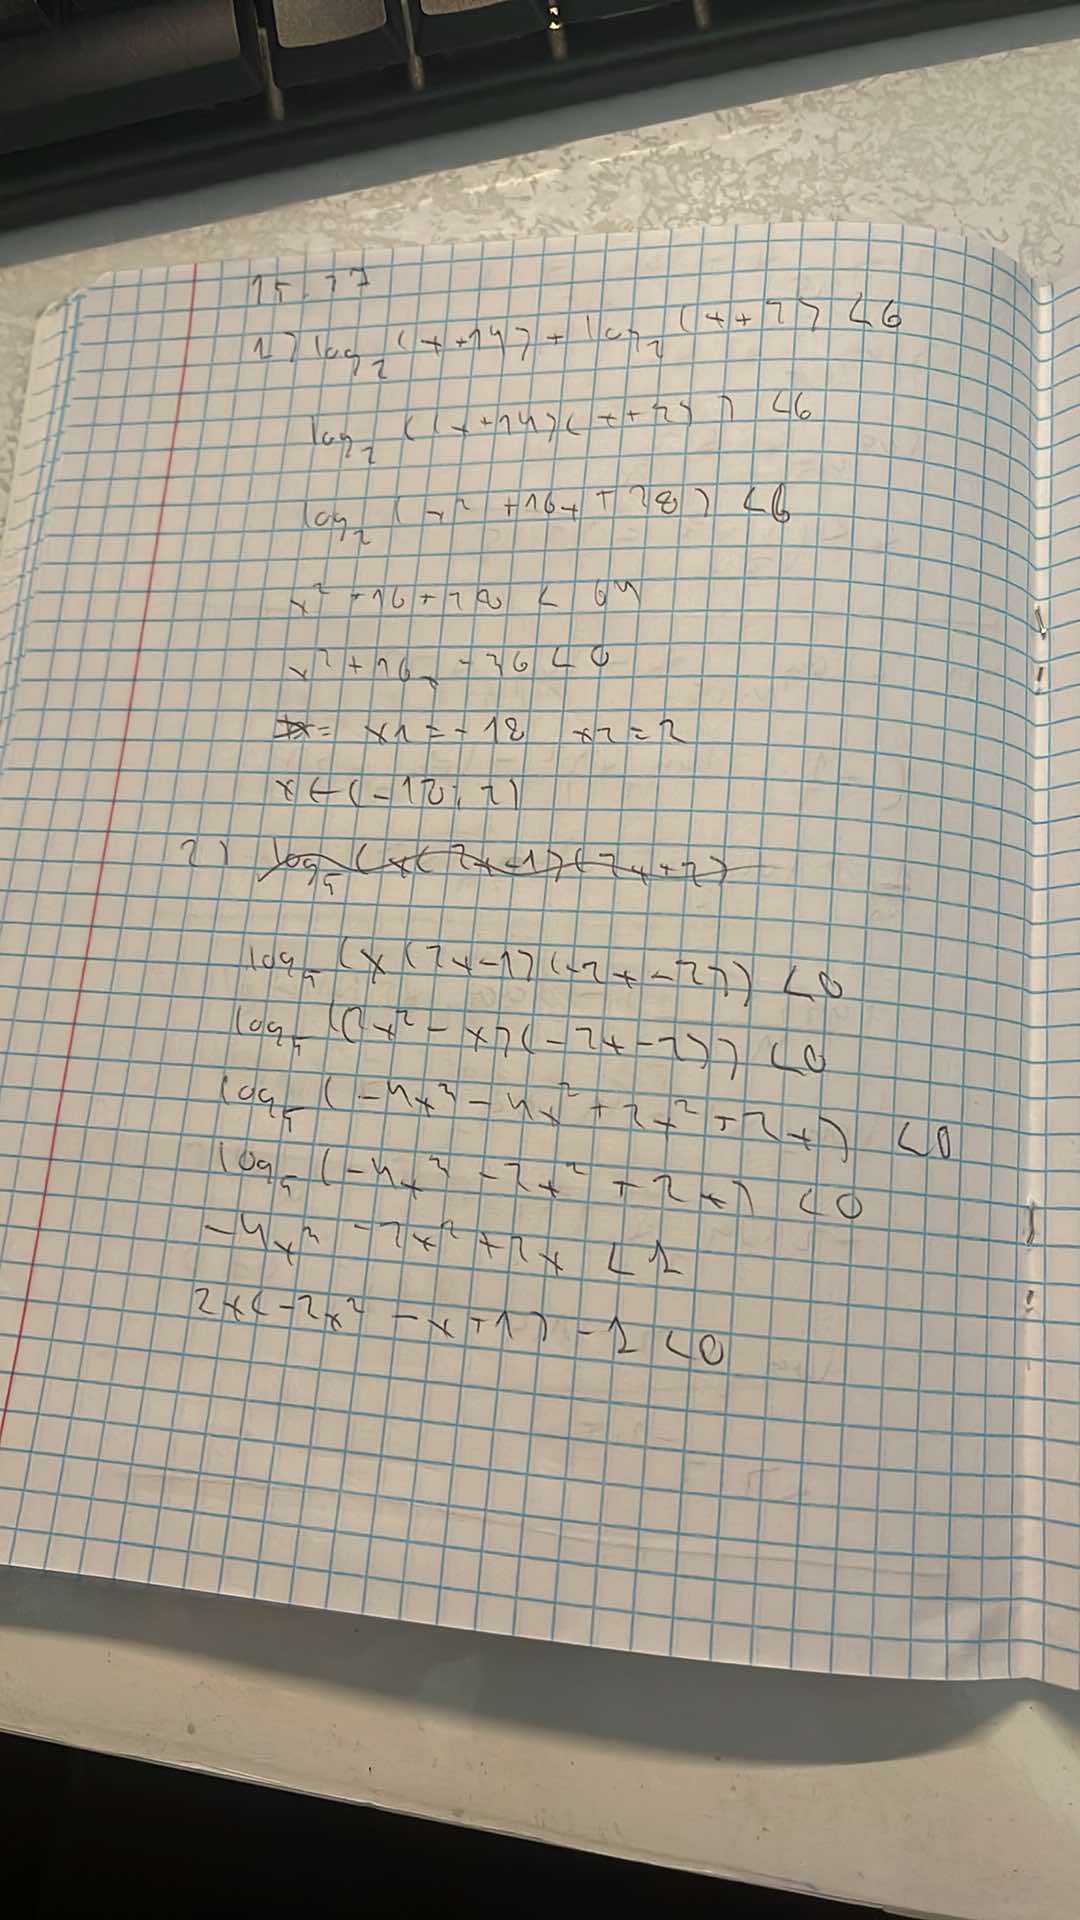 15.77
1) log₂(x+14) + log₂(x+2) < 6
log₂((x+14)(x+2)) < 6
log₂(x² + 16x + 28) < 6
x² + 16 + 28 < 64
x² + 16x - 36 < 0
x1 = -18 x2 = 2
x ∈ (-18; 2)
2) log₅(x(2x-1)(2x+2)
log₅(x(2x-1)(-2x-2)) < 0
log₅((2x² - x)(-2x-2)) < 0
log₅(-4x³ - 4x² + 2x² + 2x) < 0
log₅(-4x³ - 2x² + 2x) < 0
-4x³ - 2x² + 2x < 1
2x(-2x² - x + 1) - 1 < 0